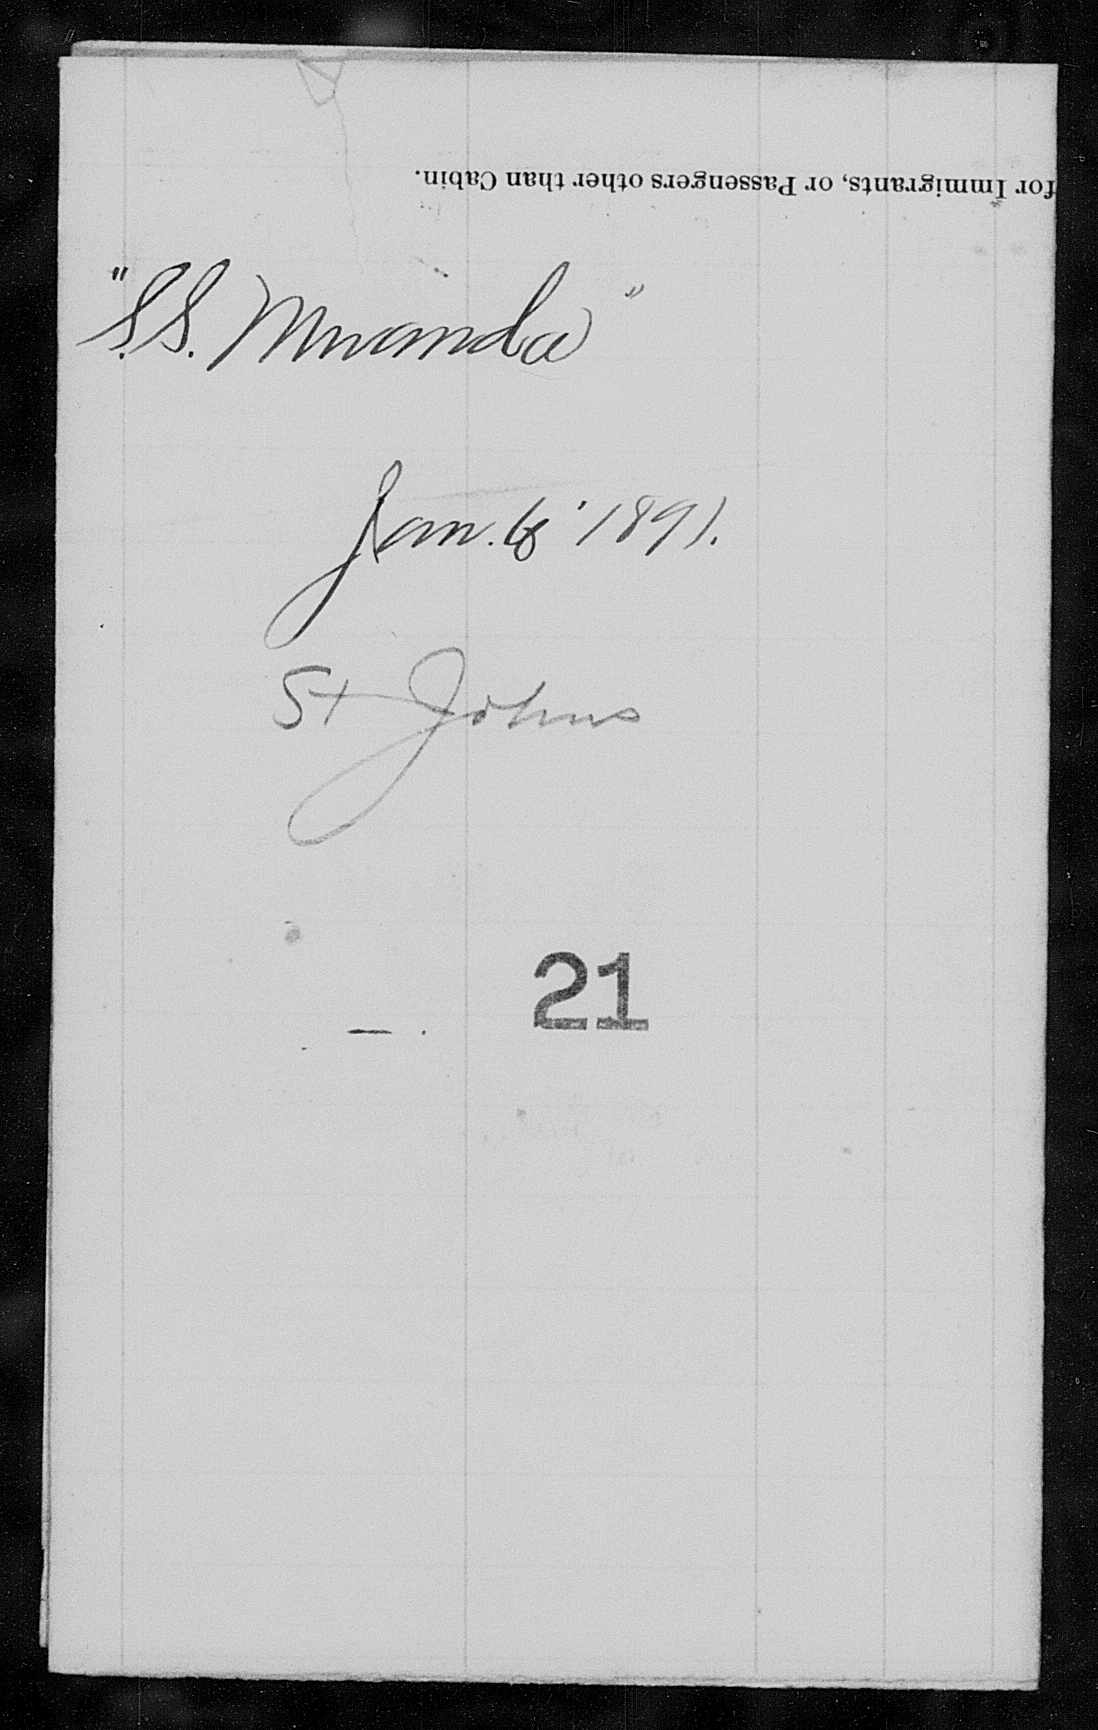 for Immigrants, or Passengers other than Cabin.
"S.S. Miranda"
Jan. 6' 1891.
St Johns
21